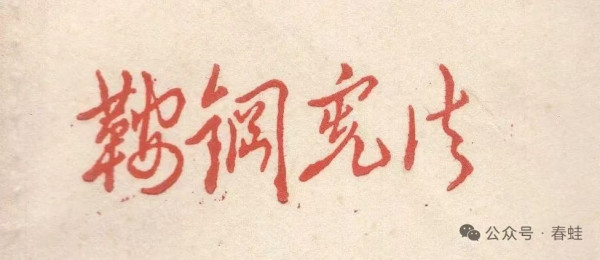 鞍钢宪法
公众号 · 春蛙